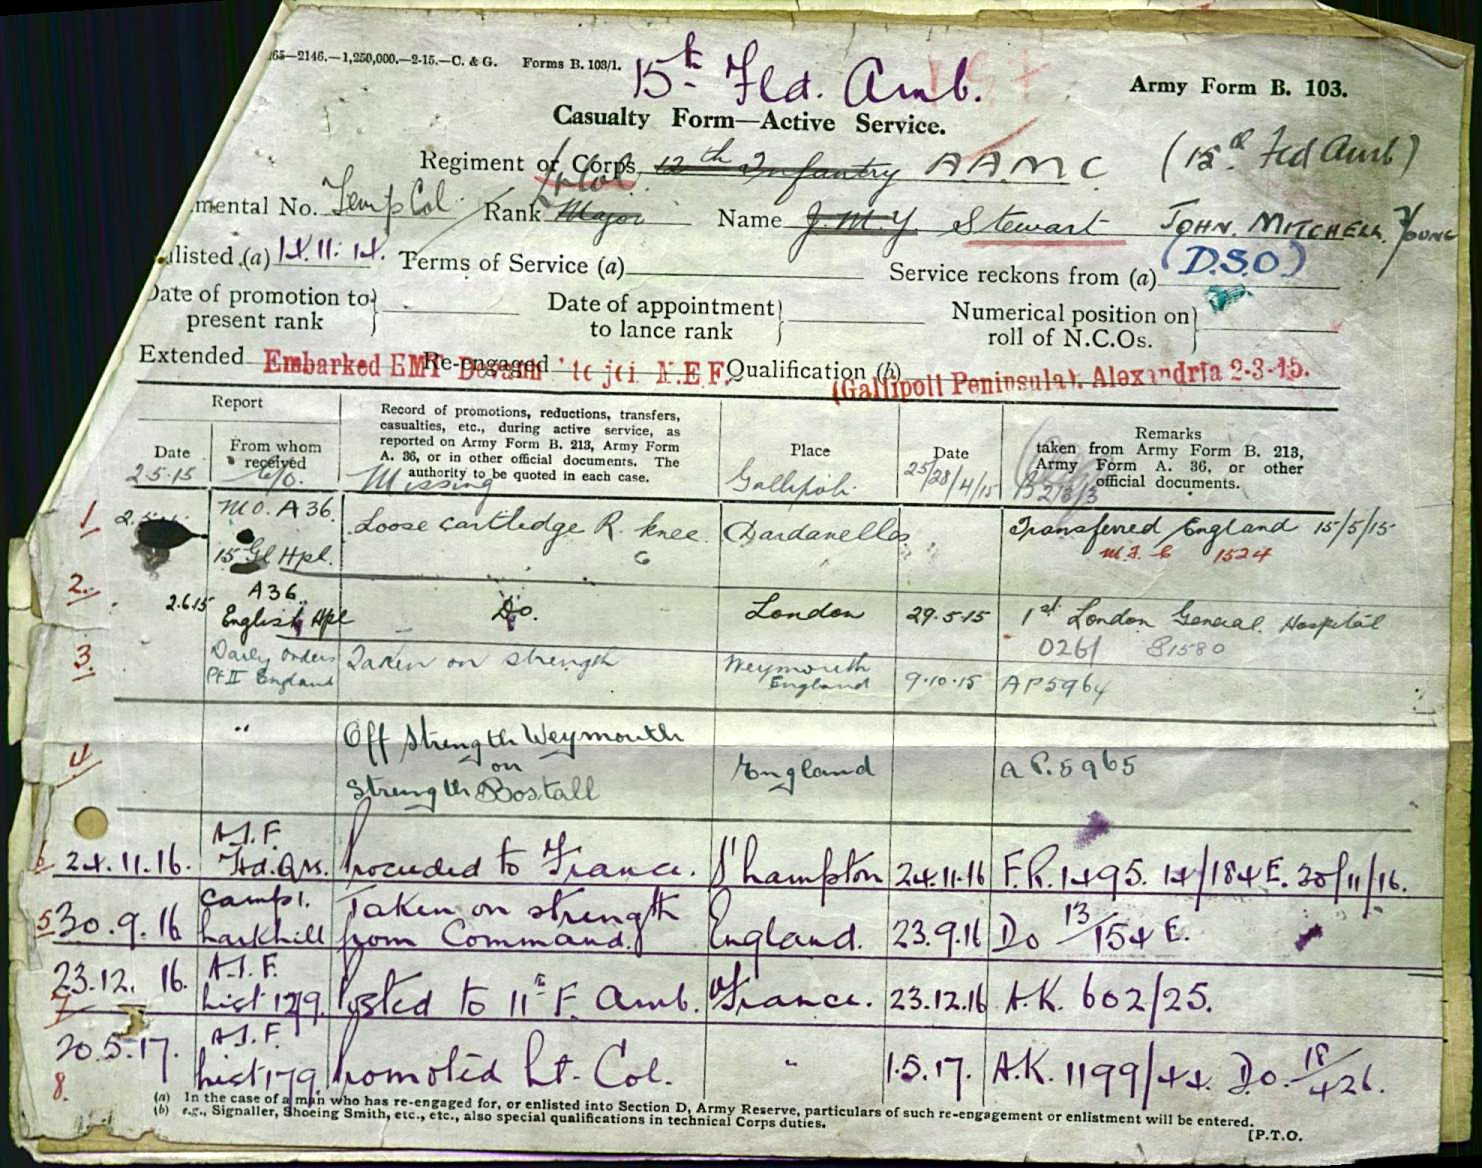 65—2146.—1,250,000.—2-15.—C. & G. Forms B. 103/1.
15th Fld. Amb.
Army Form B. 103.
Casualty Form—Active Service.
Regiment or Corps 12th Infantry A A M C (15th Fld Amb)
mental No. Temp Col Rank Major Name J. M. Y. Stewart JOHN. MITCHELL YOUNG
listed (a) 14. 11. 14. Terms of Service (a) Service reckons from (a) (D.S.O)
Date of promotion to present rank Date of appointment to lance rank Numerical position on roll of N.C.Os.
Extended Re-engaged Qualification (h)
Embarked EMT to joi M.E.F. (Gallipoli Peninsula). Alexandria 2-3-15.
Report
Date
From whom received
Record of promotions, reductions, transfers, casualties, etc., during active service, as reported on Army Form B. 213, Army Form A. 36, or in other official documents. The authority to be quoted in each case.
Place
Date
Remarks
taken from Army Form B. 213, Army Form A. 36, or other official documents.
2-5-15 C/O. Missing Gallipoli 25/28/4/15
1 M.O. A 36. 15 Gl Hpl. Loose cartledge R. knee. Dardanelles Transferred England 15/5/15
1524
2. 2.6.15 A36. English Hpl Do. London 29.5.15 1st London General Hospital
0261 81580
3. Daily orders Pt II England Taken on strength Weymouth England 9.10.15 AP5964
4 " Off Strength Weymouth on Strength Bostall England A P. 5965
6 24.11.16. A.I.F. Hd.Qrs. Proceeded to France. S'hampton 24.11.16 F.R. 1495. 14/184 E. 30/11/16.
5 30.9.16 Camp 1. Larkhill Taken on strength from Command. England. 23.9.16 Do 13/154 E.
7 23.12.16. A.I.F. List 129. Posted to 11th F. Amb. France. 23.12.16 A.K. 602/25.
8. 20.5.17. A.I.F. List 179. Promoted Lt-Col. " 1.5.17. A.K. 1199/44. Do. 18/426.
(a) In the case of a man who has re-engaged for, or enlisted into Section D, Army Reserve, particulars of such re-engagement or enlistment will be entered.
(b) e.g., Signaller, Shoeing Smith, etc., etc., also special qualifications in technical Corps duties.
[P.T.O.